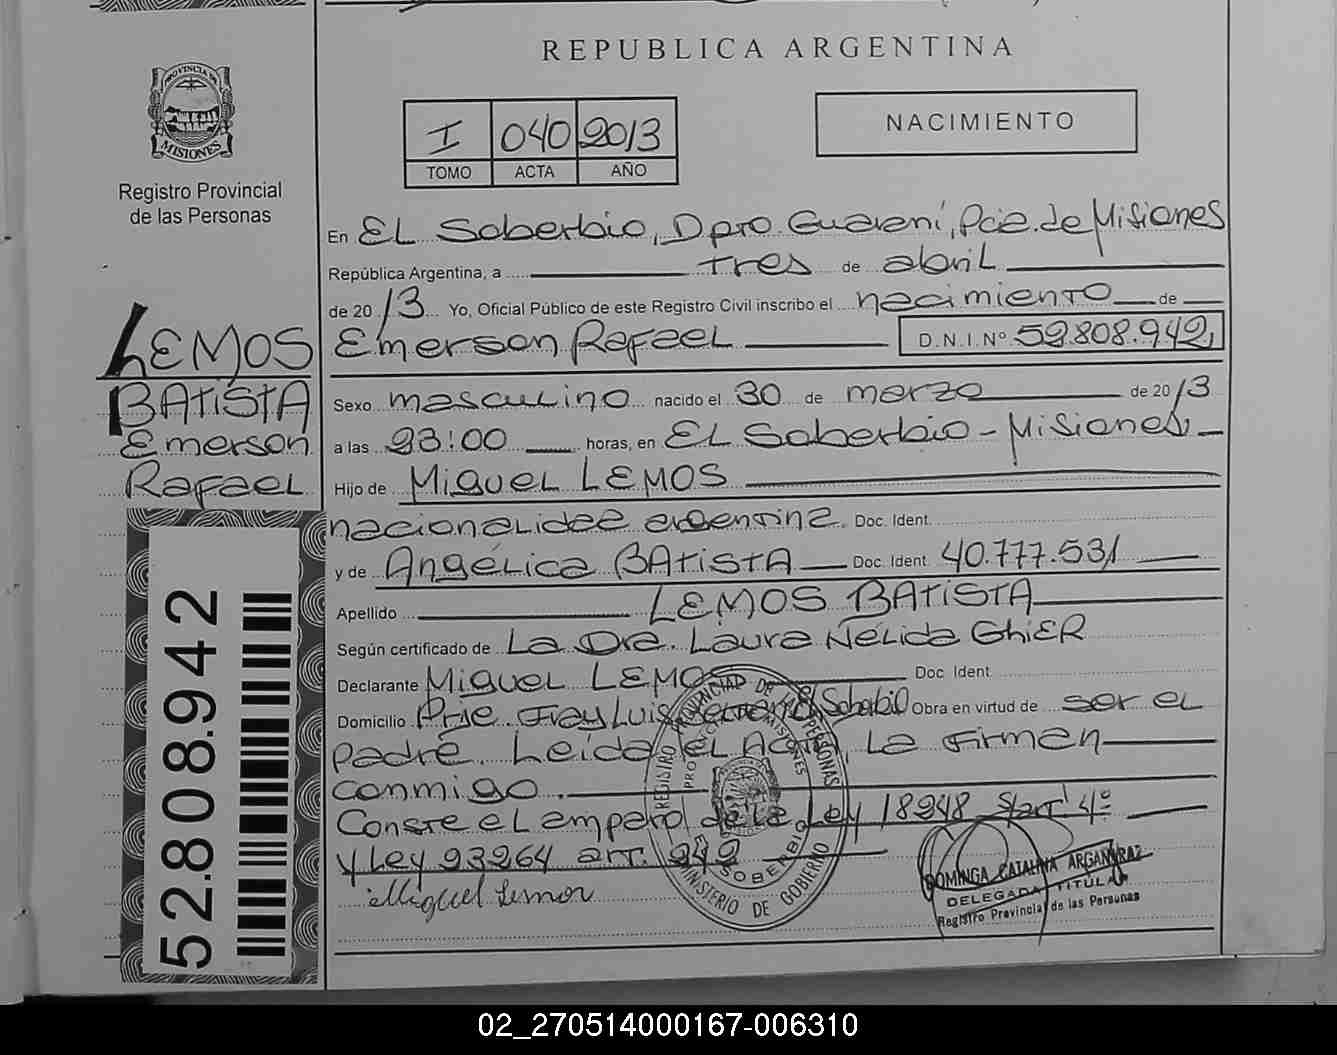 REPUBLICA ARGENTINA
PROVINCIA DE
MISIONES
Registro Provincial
de las Personas
I 040 2013
TOMO ACTA AÑO
NACIMIENTO
En EL Soberbio, Dpto. Guaraní, Pcia. de Misiones
República Argentina, a tres de abril
de 2013 Yo, Oficial Público de este Registro Civil inscribo el nacimiento de
Emerson Rafael D.N.I. Nº 52.808.942,
LEMOS
BATISTA
Emerson
Rafael
Sexo masculino nacido el 30 de marzo de 2013
a las 23:00 horas, en EL Soberbio - Misiones -
Hijo de Miguel LEMOS
nacionalidad argentina. Doc. Ident.
y de Angélica BATISTA Doc. Ident. 40.777.531
Apellido LEMOS BATISTA
Según certificado de La Dra. Laura Nélida GhiER
Declarante Miguel LEMOS Doc Ident.
Domicilio Prje. Fray Luis El Soberbio Obra en virtud de ser el
padre. Leída el Acta, La firman
conmigo.
Conste el amparo de la Ley 18248 S/art 4º
y Ley 23264 art. 242
Miguel Lemos
REGISTRO PROVINCIAL DE LAS PERSONAS
PROVINCIA DE MISIONES
EL SOBERBIO
MINISTERIO DE GOBIERNO
DOMINGA CATALINA ARGAÑARAZ
DELEGADA TITULAR
Registro Provincial de las Personas
52.808.942
02_270514000167-006310